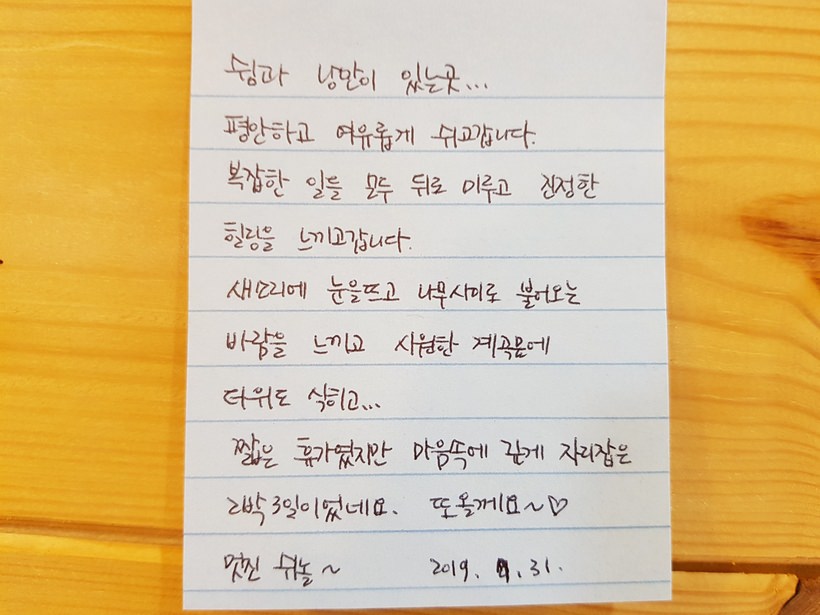 쉼과 낭만이 있는곳...
평안하고 여유롭게 쉬고갑니다.
복잡한 일들 모두 뒤로 미루고 진정한
힐링을 느끼고갑니다.
새소리에 눈을뜨고 나무사이로 불어오는
바람을 느끼고 시원한 계곡물에
더위도 식히고...
짧은 휴가였지만 마음속에 깊게 자리잡은
2박 3일이었네요. 또올께요~♡
멋진 쉬놀~ 2019. 31.